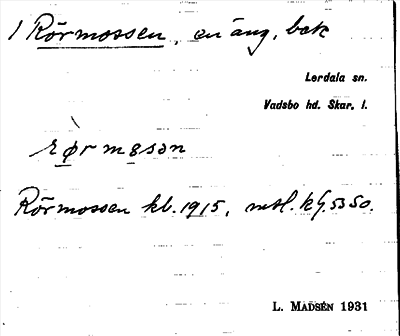 1 Rörmossen, en äng, bak
Lerdala sn.
Vadsbo hd. Skar. l.
rø̀rmɵsən
Rörmossen kb. 1915, mtl. kf. 53 So.
L. MADSÉN 1931